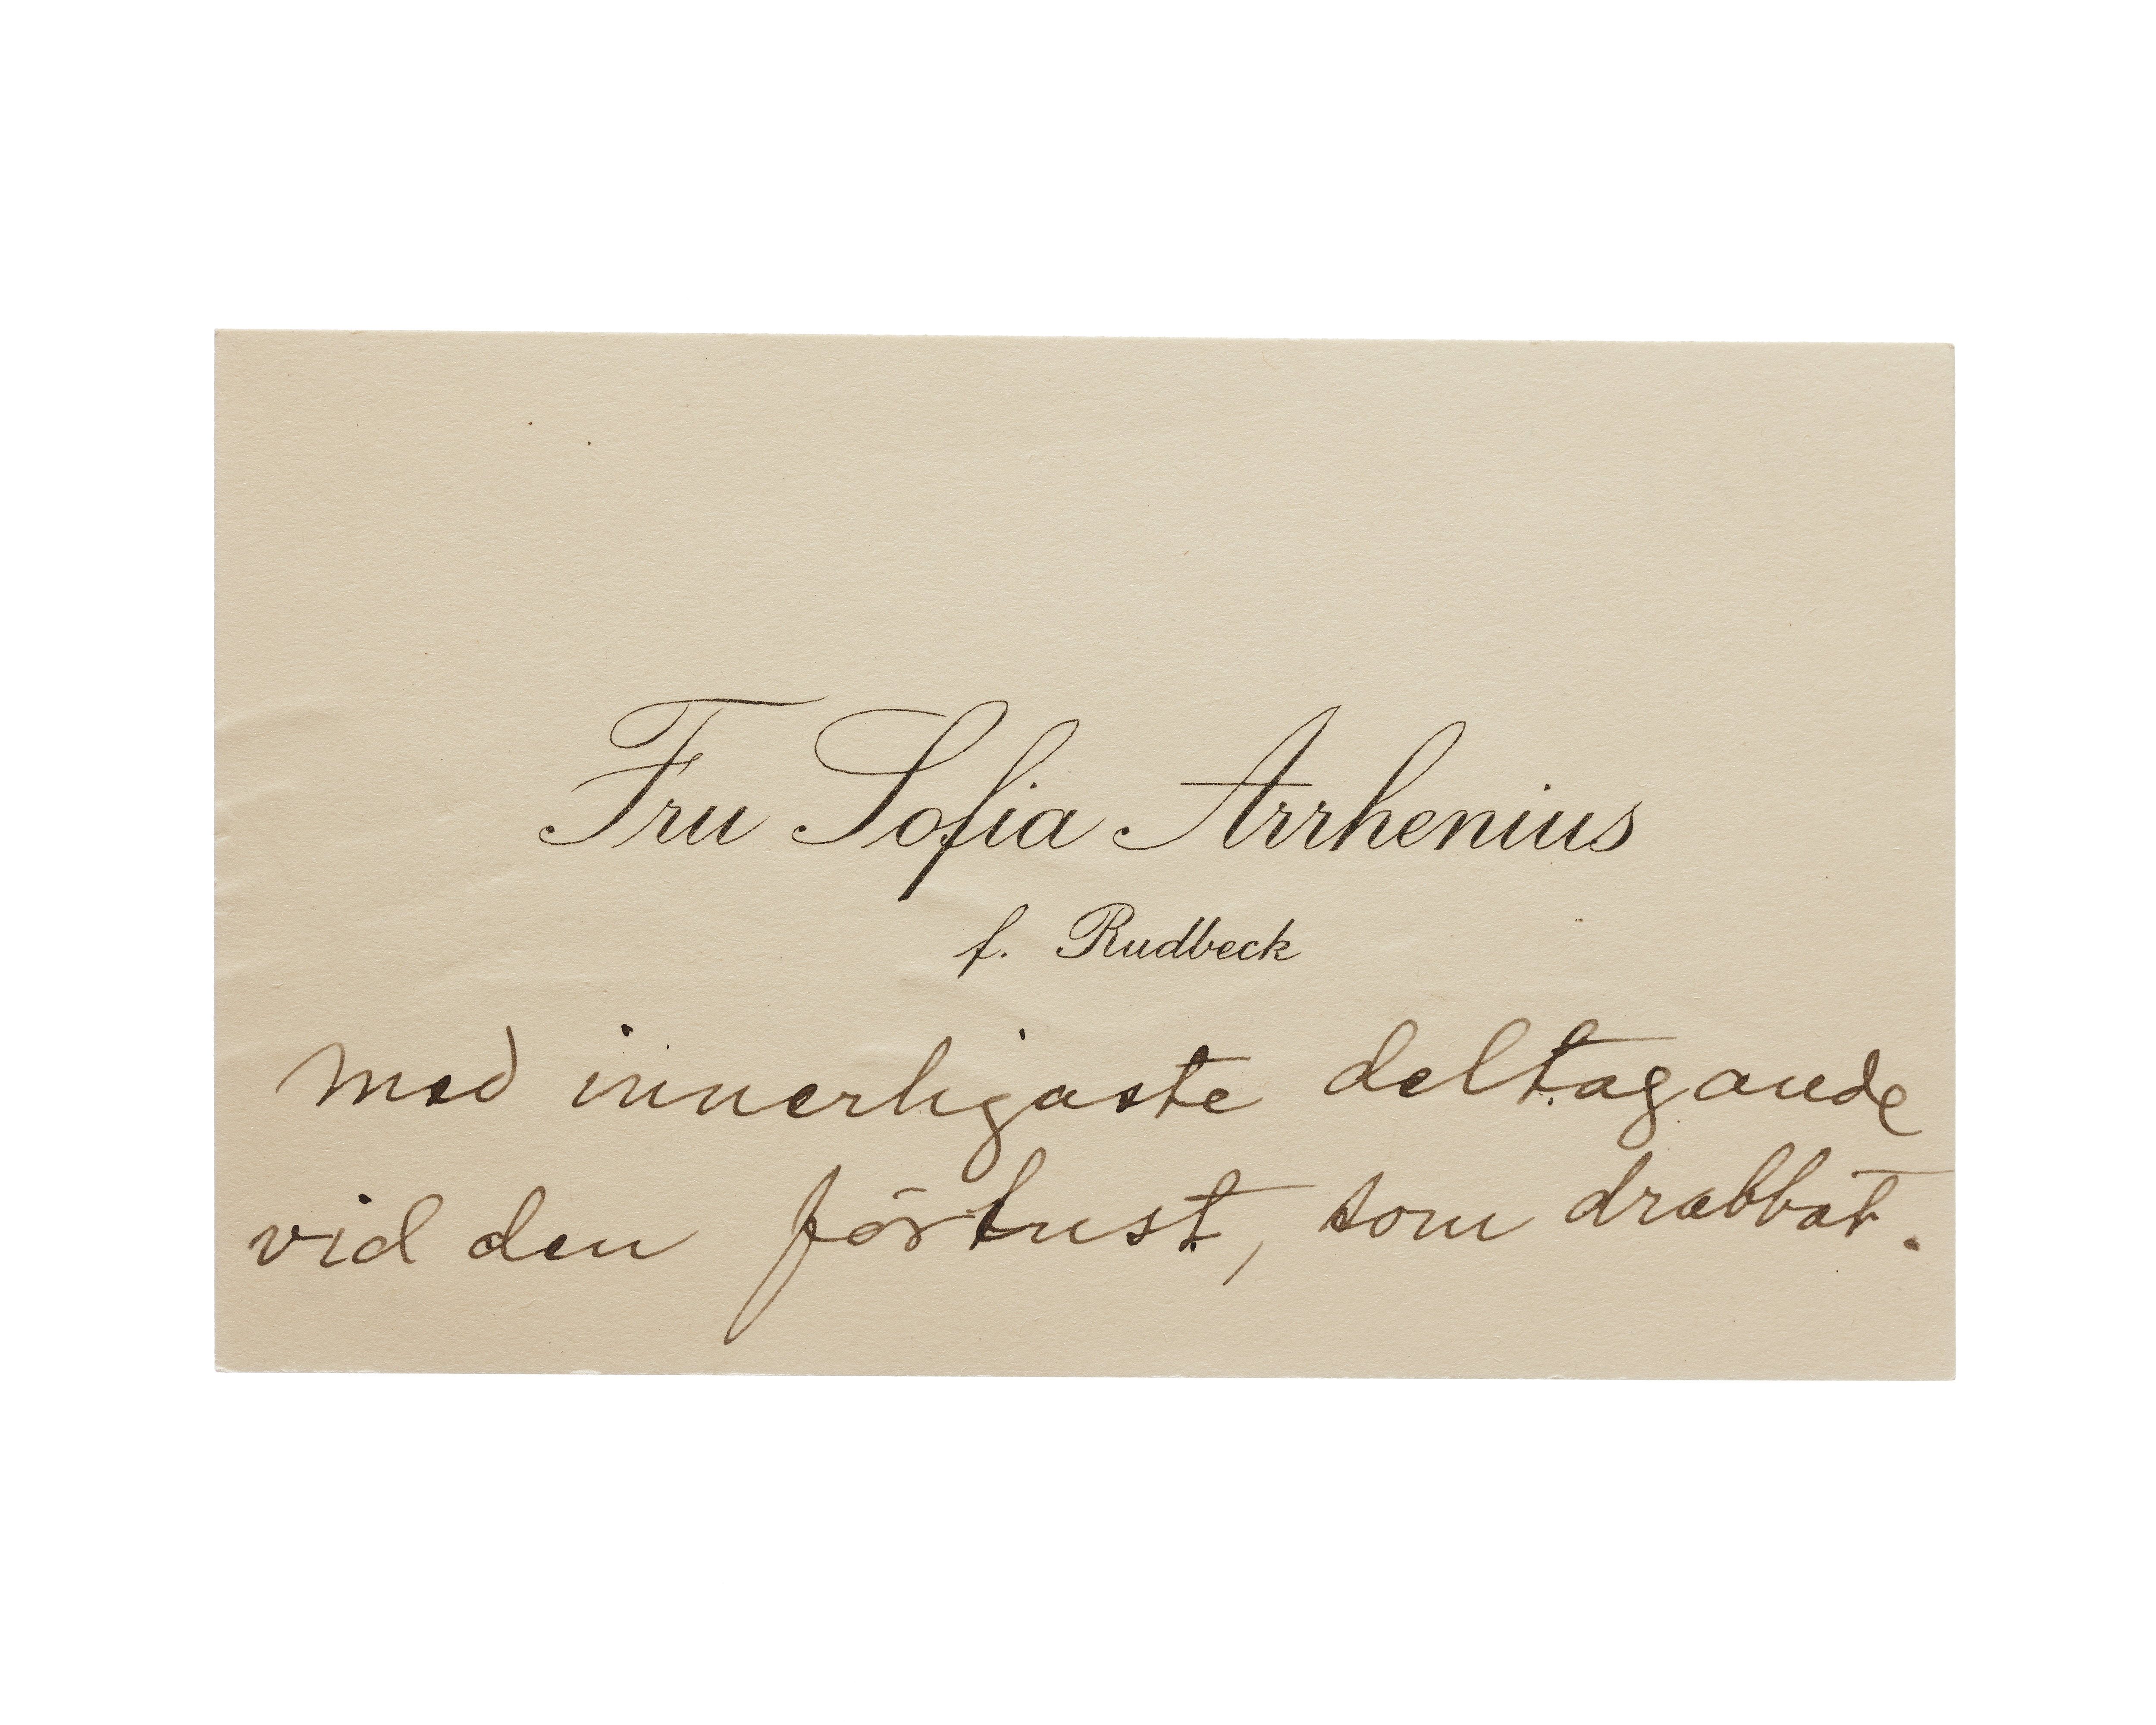 Fru Sofia Arrhenius
f. Rudbeck
med innerligaste deltagande
vid den förlust, som drabbat.